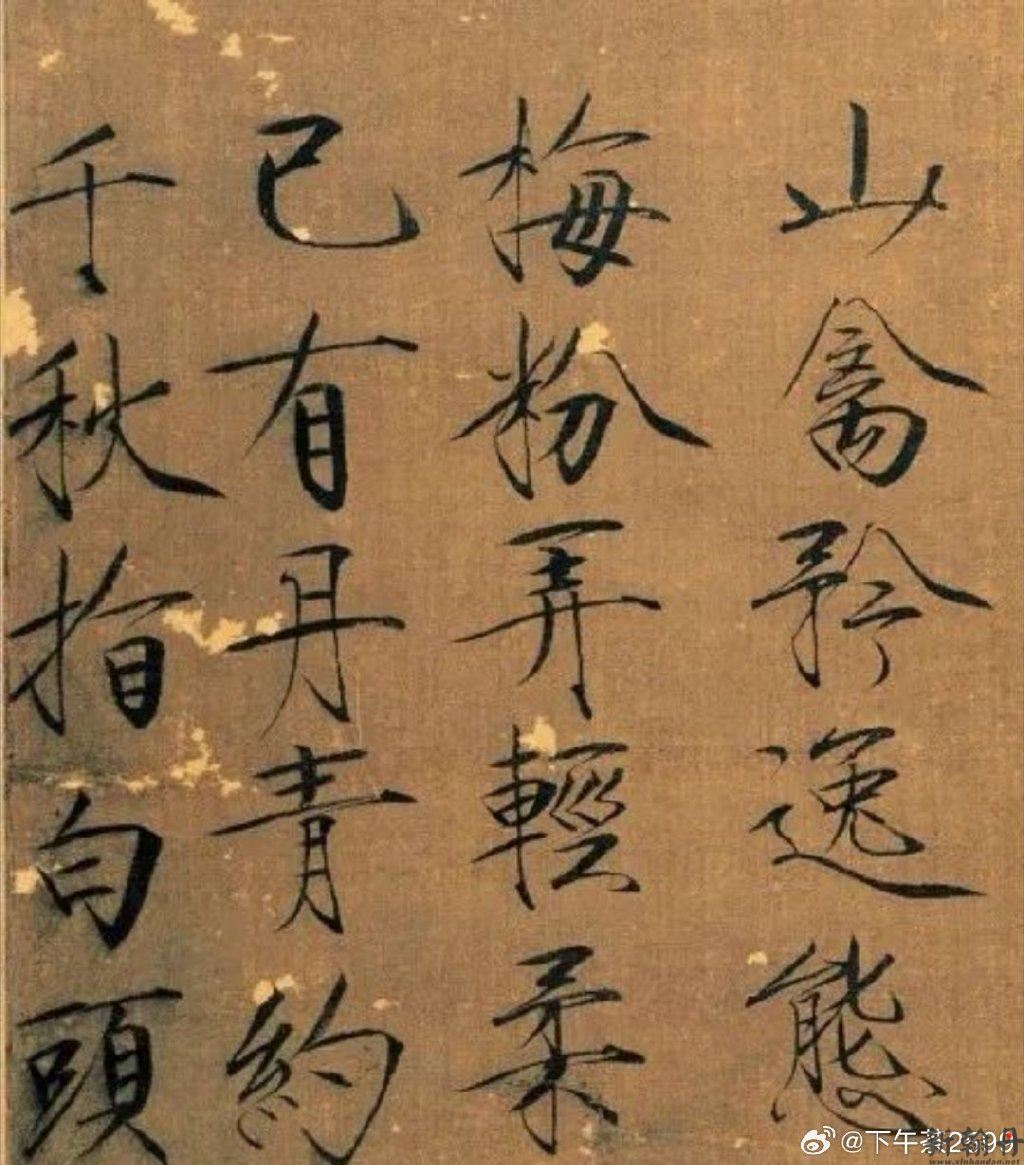 山禽矜逸態
梅粉弄輕柔
已有丹青約
千秋指白頭
@下午茶2699
新邯丹
www.xinhandan.net